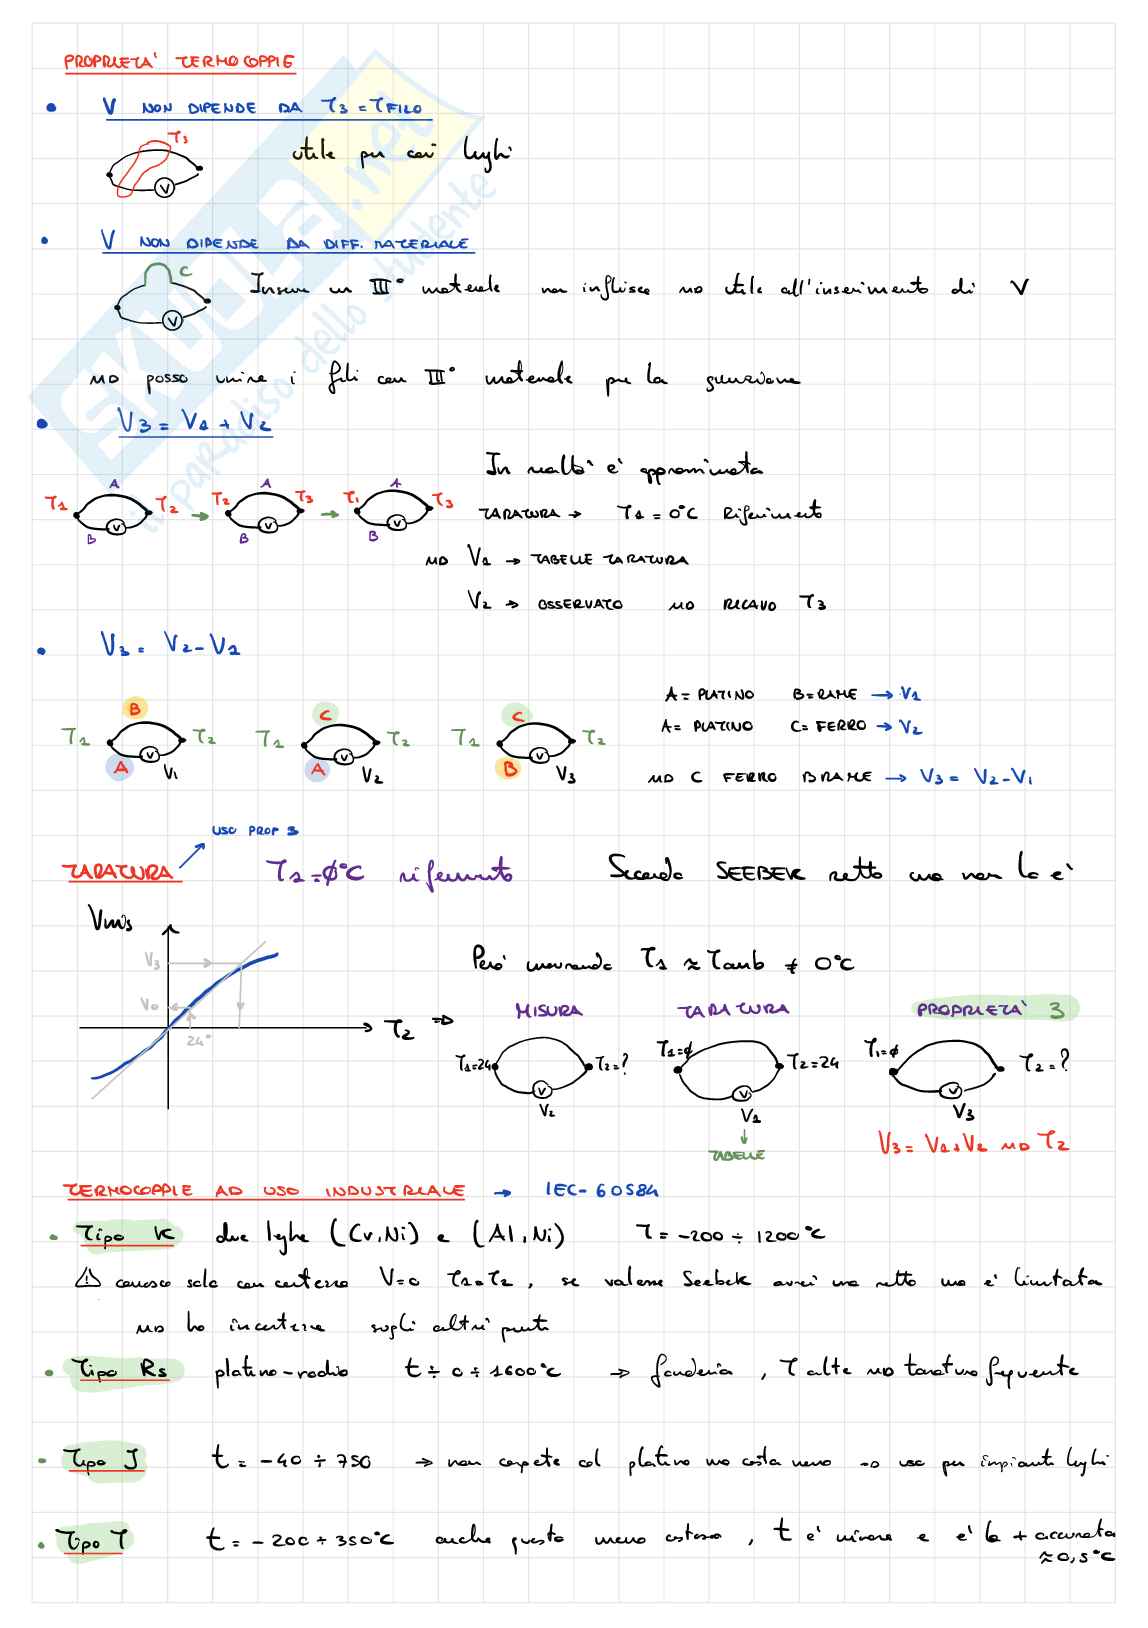 PROPRIETA' TERMOCOPPIE
• V NON DIPENDE DA T3 = TFILO
T3
utile per cavi lunghi
V
• V NON DIPENDE DA DIFF. MATERIALE
C
Inserire un III° materiale non influisce → utile all'inserimento di V
V
→ posso unire i fili con III° materiale per la giunzione
• V3 = V1 + V2
In realtà è approssimata
A A A
T1 T2 → T2 T3 → T1 T3
V V V
B B B
TARATURA → T1 = 0°C Riferimento
→ V1 → TABELLE TARATURA
V2 → OSSERVATO → RICAVO T3
• V3 = V2 - V1
B C C
T1 T2 T1 T2 T1 T2
V V V
A V1 A V2 B V3
A = PLATINO B = RAME → V1
A = PLATINO C = FERRO → V2
→ C FERRO B RAME → V3 = V2 - V1
USO PROP 3
TARATURA T1 = φ°C riferimento Secondo SEEBEK retta ma non lo è
Vmis
V3
V0
24°
T2 ⇒
Però misurando T1 ≈ Tamb ≠ 0°C
MISURA TARATURA PROPRIETA' 3
T1=24 T2=? T1=φ T2=24 T1=φ T2=?
V V V
V2 V1 V3
↓
TABELLE
V3 = V1 + V2 → T2
TERMOCOPPIE AD USO INDUSTRIALE → IEC-60584
• Tipo K due leghe (Cr,Ni) e (Al,Ni) T = -200 ÷ 1200°C
⚠ conosco solo con certezza V=0 T1=T2, se valesse Seebek avrei una retta ma è limitata
→ ho incertezze sugli altri punti
• Tipo Rs platino-rodio t ÷ 0 ÷ 1600°C → fonderia, T alte → taratura frequente
• Tipo J t = -40 ÷ 750 → non compete col platino ma costa meno → uso per impianti lunghi
• Tipo T t = -200 ÷ 350°C anche questo meno costoso, t è minore e è la + accurata
≈ 0,5°C
SKUOLA.net
il paradiso dello studente